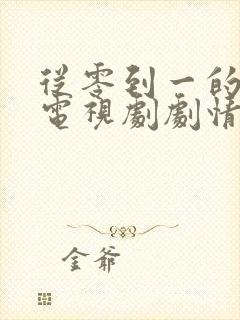 從零到一的
電視劇劇情
金爺